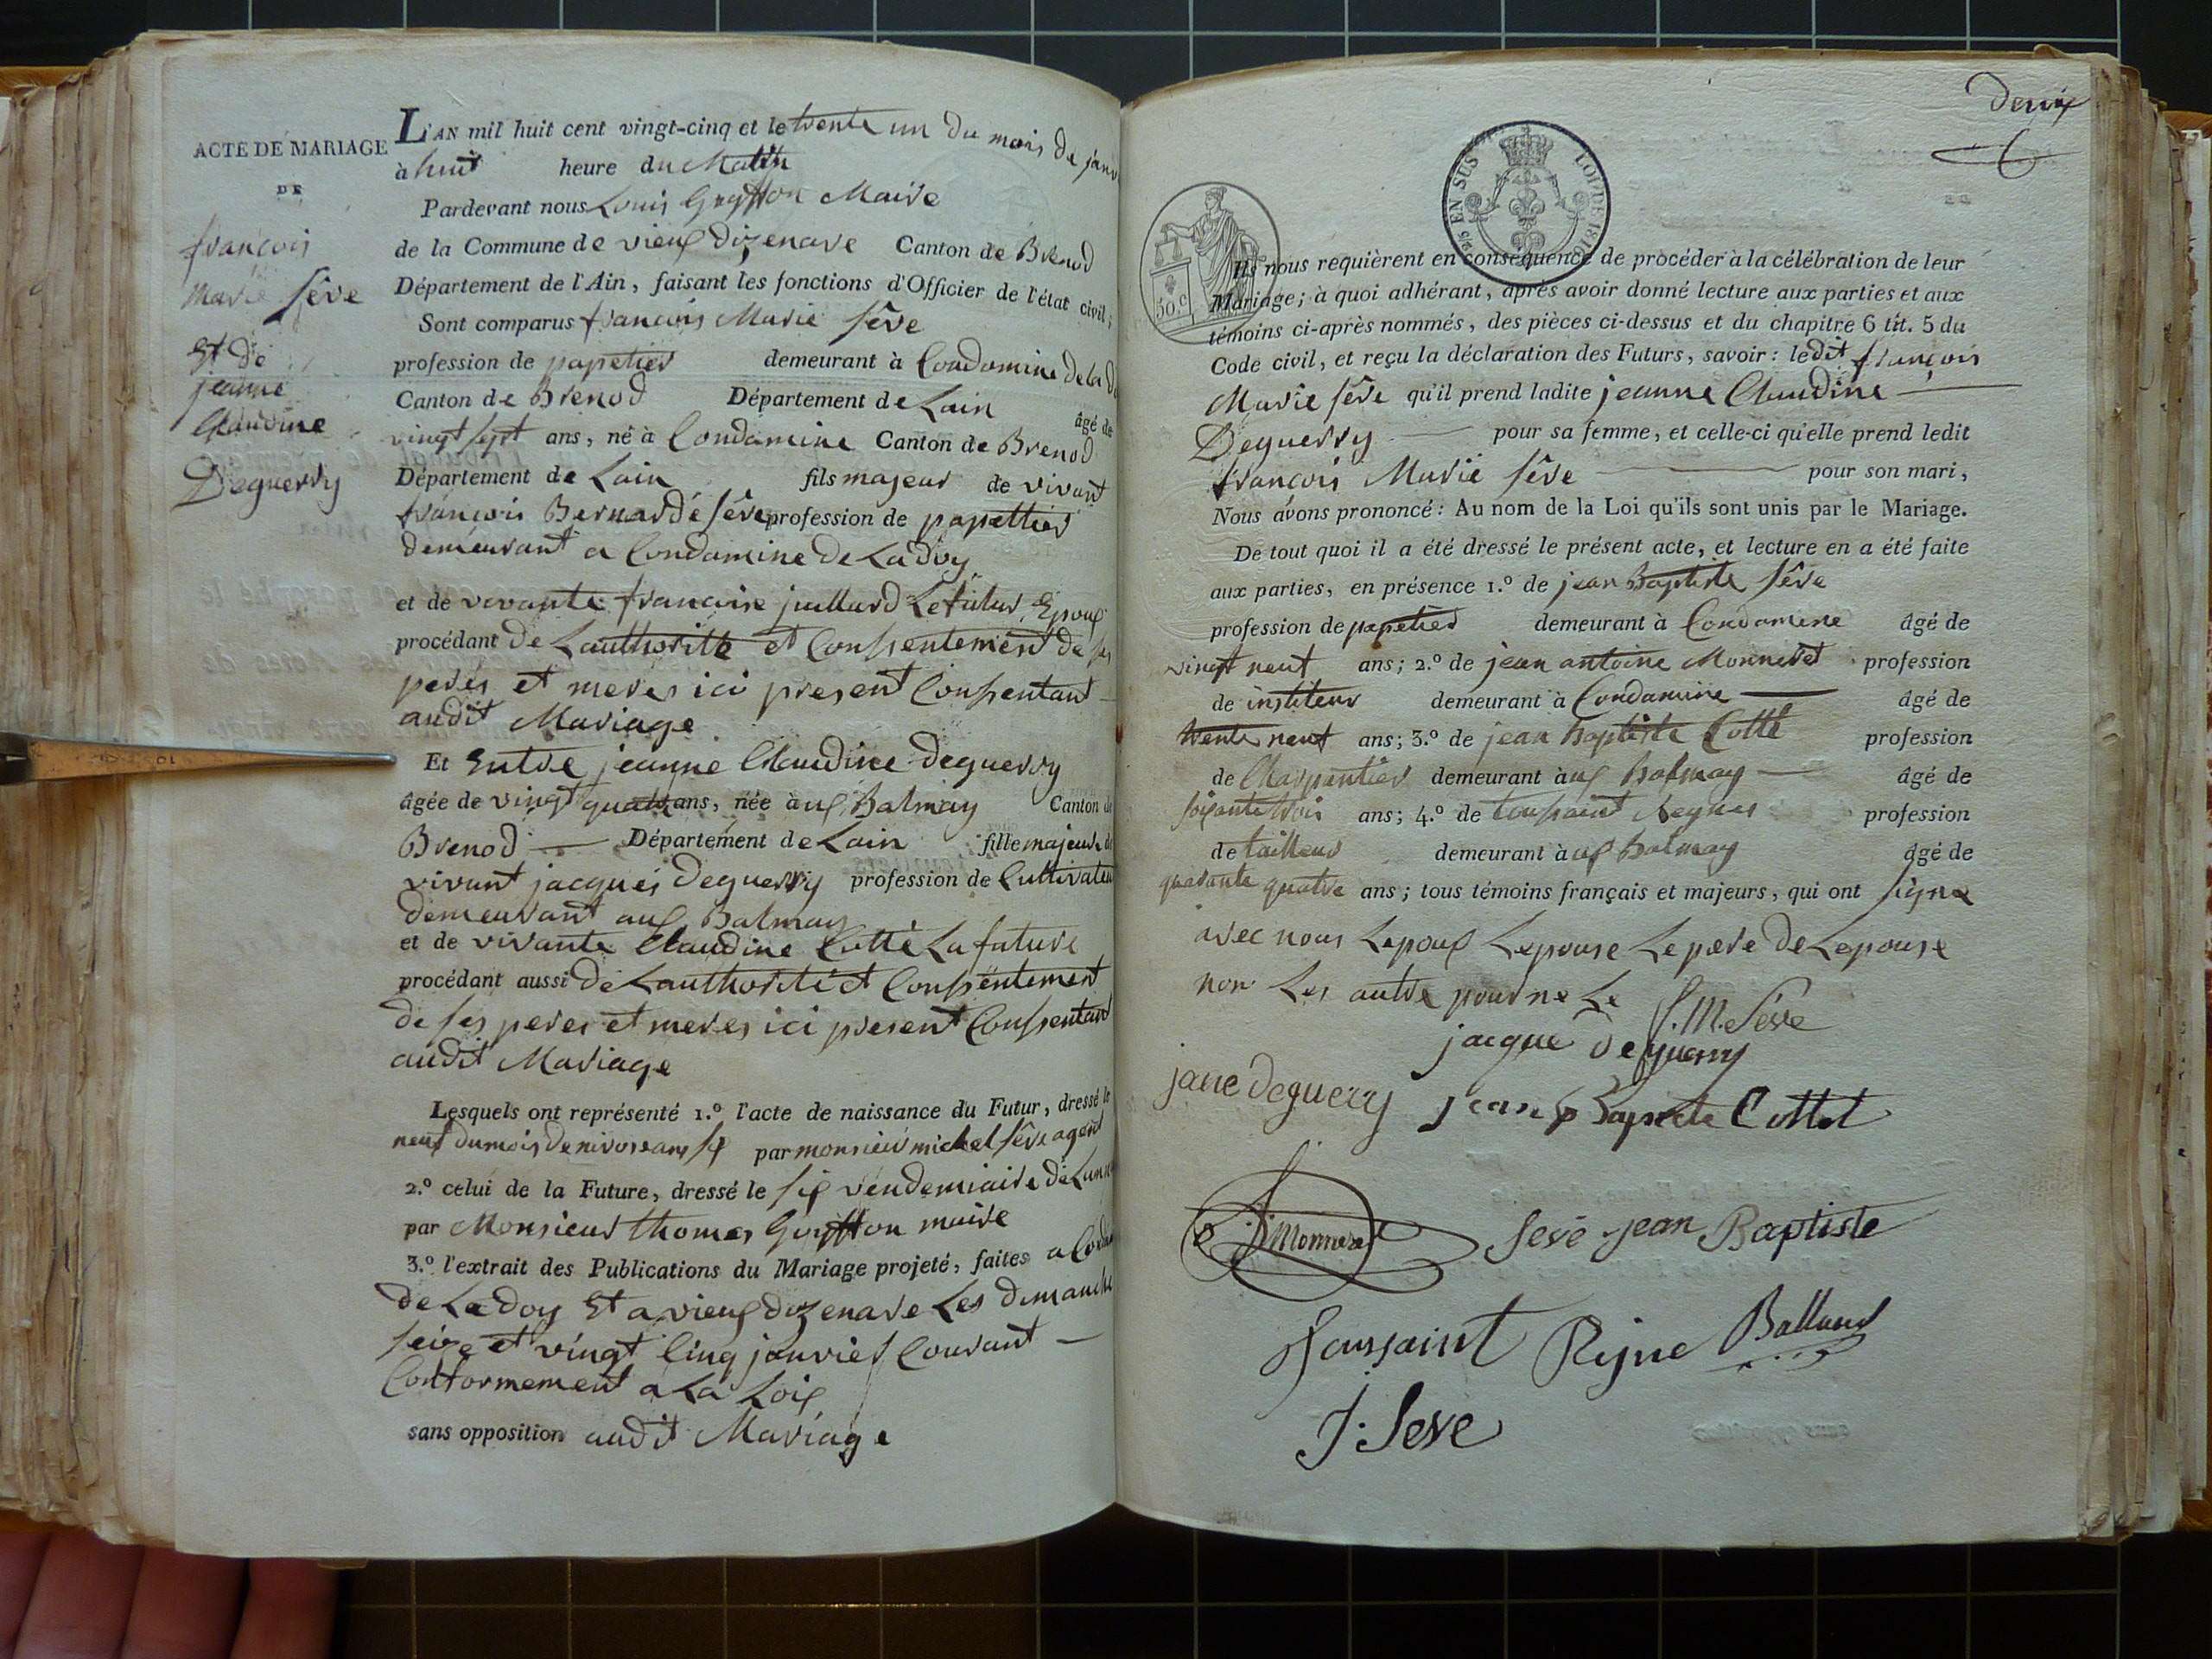 ACTE DE MARIAGE
DE
françois
marie sêve
Et de
jeanne
Claudine
Deguerry
L'AN mil huit cent vingt-cinq et le trente un du mois de janv
à huit heure du Matin
Pardevant nous Louis Maire
de la Commune de vieux dizenave Canton de Brenod
Département de l'Ain, faisant les fonctions d'Officier de l'état civil;
Sont comparus françois Marie sêve
profession de papetier demeurant à Condamine de la
Canton de Brenod Département de Lain âgé de
vingt sept ans, né à Condamine Canton de Brenod
Département de Lain fils majeur de vivant
françois Bernardé sêve profession de papettier
demeurant a Condamine de Ladoy
et de vivante francoise juillard Le futur Epoux
procédant de Lauthorité et Conssentement de ses
peres et meres ici present Conssentant
audit Mariage
Et Entre jeanne Claudine deguerry
âgée de vingt quatre ans, née à ux Balmay Canton de
Brenod Département de Lain fille majeure de
vivant jacques deguerry profession de Cultivateu
demeurant aux Balmay
et de vivante Claudine Cotte La future
procédant aussi de Lauthorité et Conssentement
de ses peres et meres ici present Conssentant
audit Mariage
Lesquels ont représenté 1.º l'acte de naissance du Futur, dressé le
neuf du mois de nivose ans six par monsieur michel sêve agent
2.º celui de la Future, dressé le six vendemiaire de Lann
par Monsieur thomas maire
3.º l'extrait des Publications du Mariage projeté, faites a
de Ladoy Et a vieux dizenave Les dimanche
seize et vingt Cinq janvier Courant
Conformement a La Loix
sans opposition audit Mariage
deux
25 EN SUS LOI DE 1816
50.c
Ils nous requièrent en conséquence de procéder à la célébration de leur
Mariage; à quoi adhérant, après avoir donné lecture aux parties et aux
témoins ci-après nommés, des pièces ci-dessus et du chapitre 6 tit. 5 du
Code civil, et reçu la déclaration des Futurs, savoir: ledit françois
Marie sêve qu'il prend ladite jeanne Claudine
Deguerry pour sa femme, et celle-ci qu'elle prend ledit
françois Marie sêve pour son mari,
Nous avons prononcé: Au nom de la Loi qu'ils sont unis par le Mariage.
De tout quoi il a été dressé le présent acte, et lecture en a été faite
aux parties, en présence 1.º de jean Baptiste sêve
profession de papetier demeurant à Condamine âgé de
vingt neuf ans; 2.º de jean antoine Monneret profession
de institeur demeurant à Condamine âgé de
trente neuf ans; 3.º de jean Baptiste Cotte profession
de Charpentier demeurant à ux Balmay âgé de
soixante trois ans; 4.º de toussaint profession
de tailleur demeurant à ux Balmay âgé de
quarante quatre ans; tous témoins français et majeurs, qui ont signe
avec nous Lepoux Lepouse Le pere de Lepouse
non Les autre pour ne Le
f.M. Séve
jacque deguerry
jane deguerry jean Baptiste Cottet
Monneret seve jean Baptiste
Toussaint Rejne Balland
J. Seve